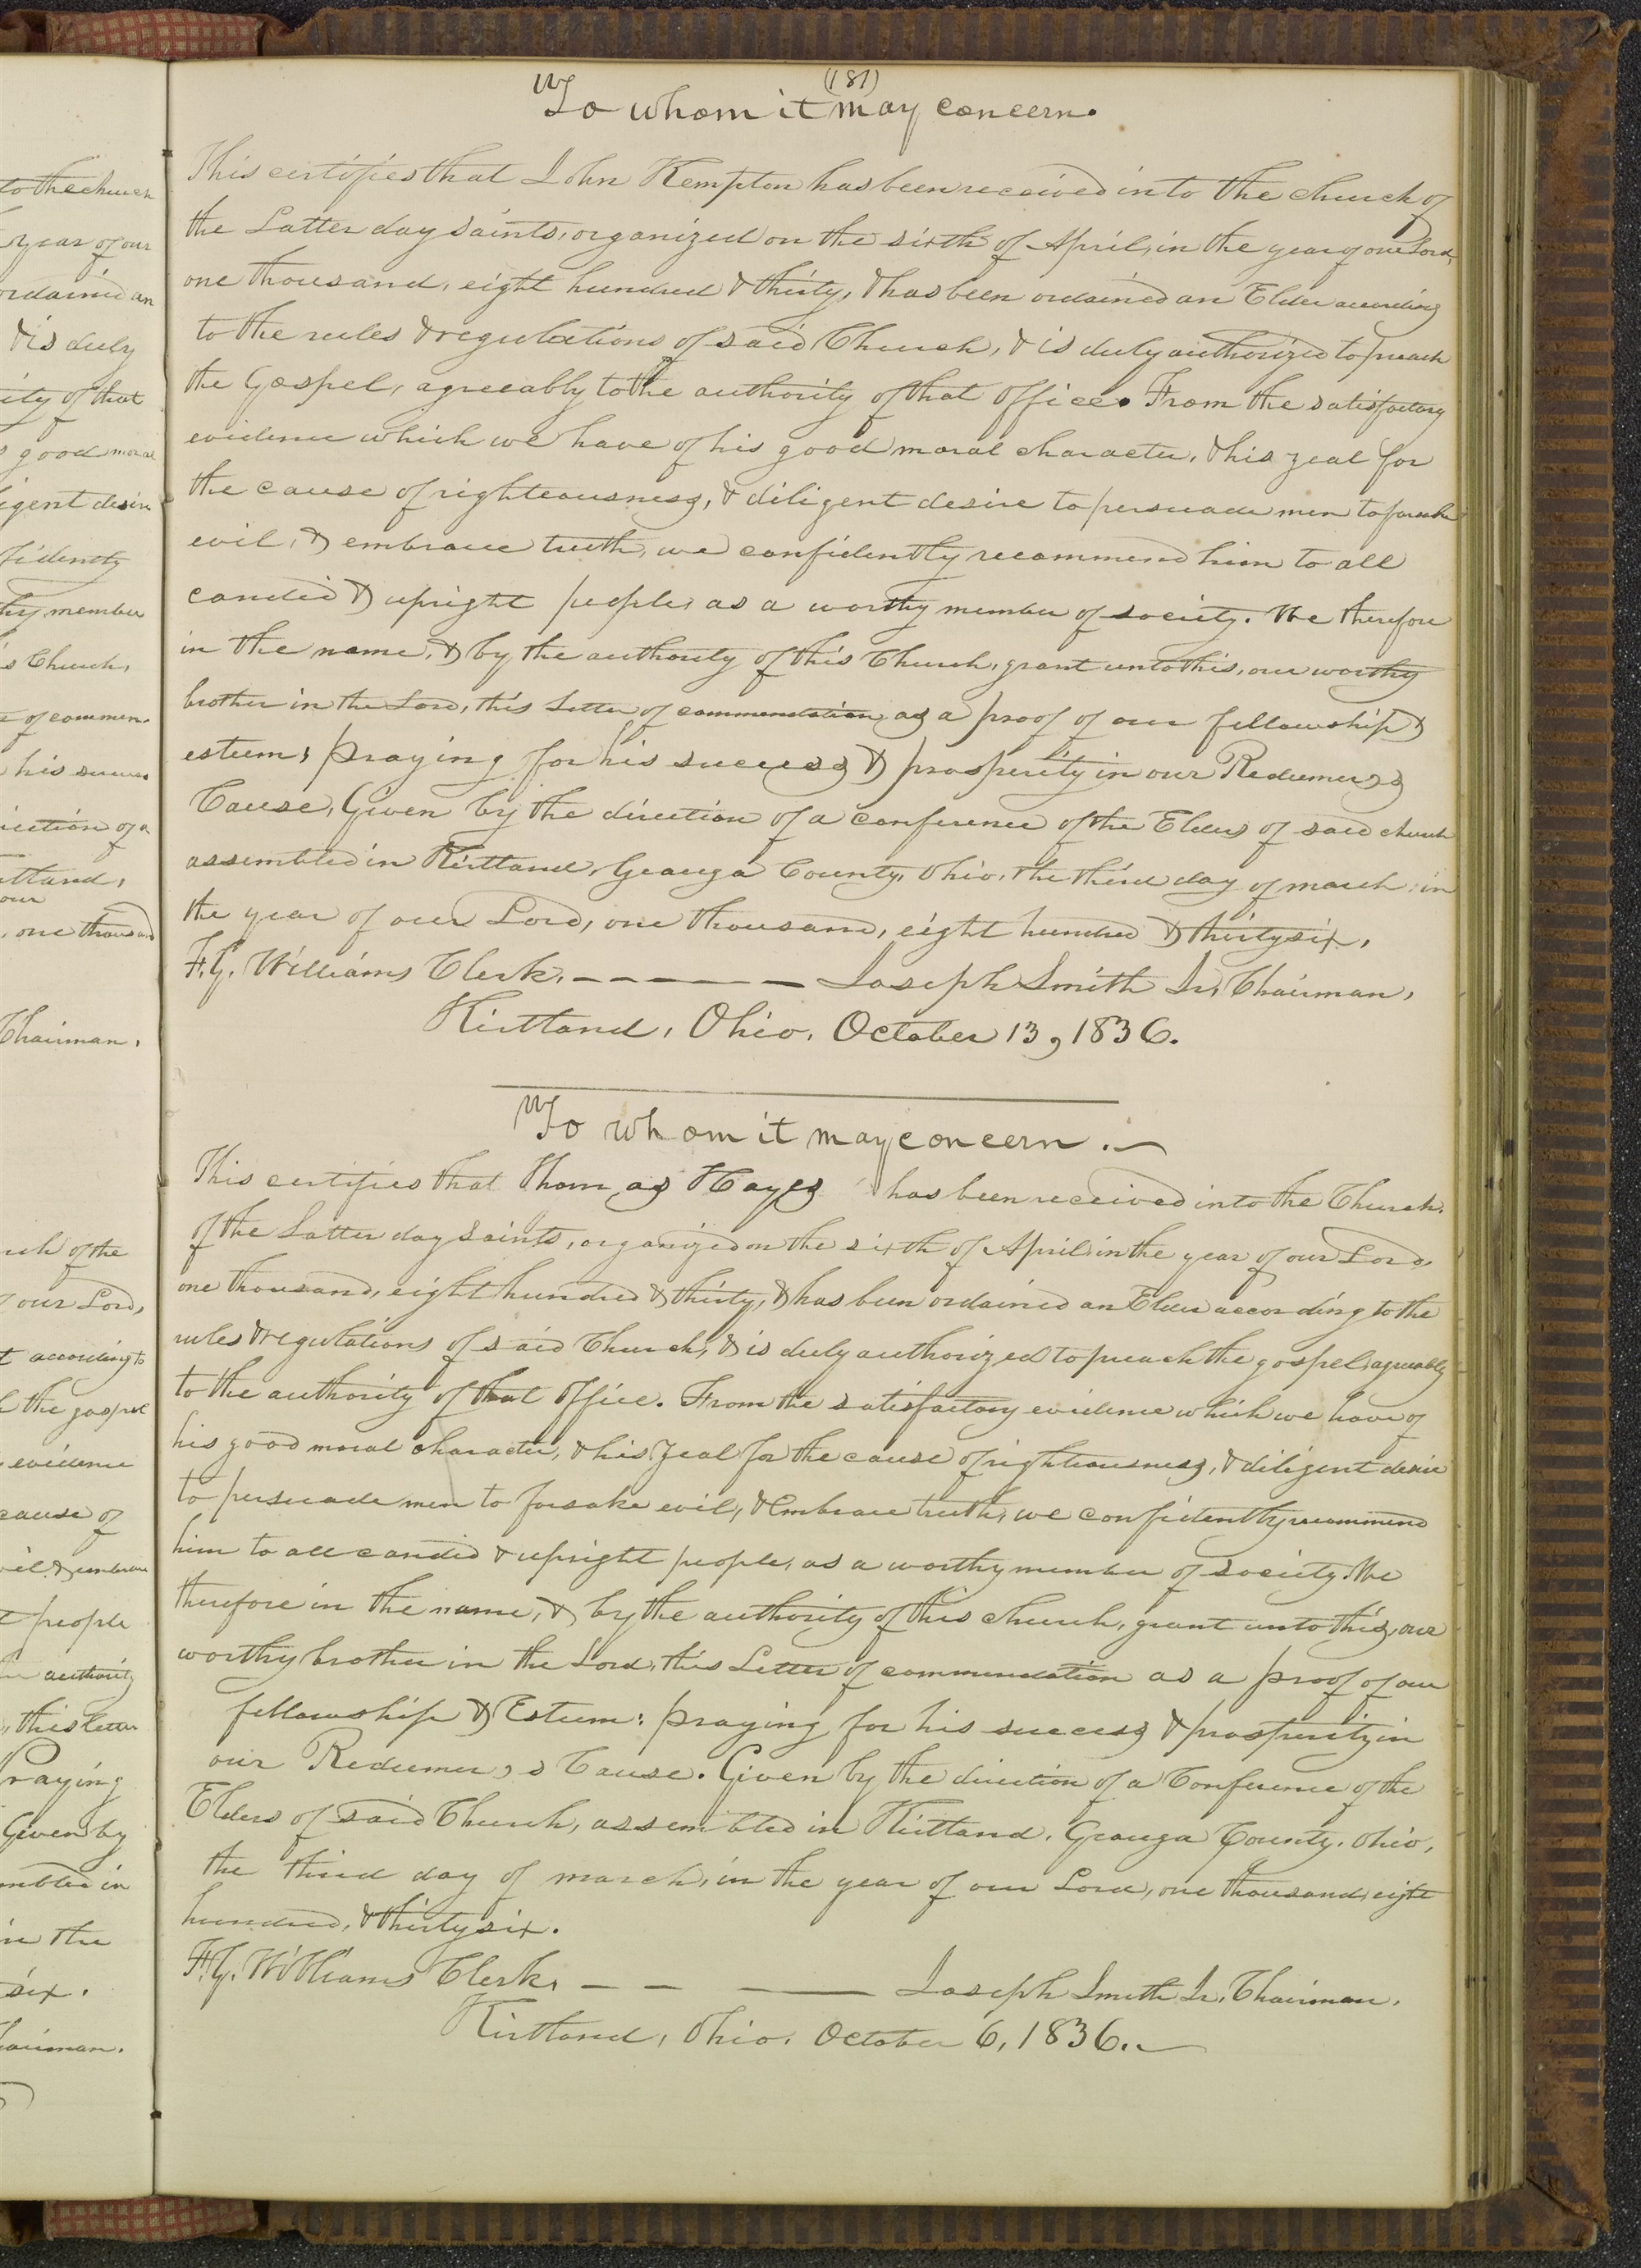 (181)
To whom it may concern.
This certifies that John Kempton has been received into the church of
the Latter day saints, organized on the sixth of April, in the year of our Lord,
one thousand, eight hundred & thirty, & has been ordained an Elder according
to the rules & regulations of said Church, & is duly authorized to preach
the Gospel, agreeably to the authority of that office. From the satisfactory
evidence which we have of his good moral character, & his zeal for
the cause of righteousness, & diligent desire to persuade men to forsake
evil, & embrace truth, we confidently recommend him to all
candid & upright people, as a worthy member of society. We therefore
in the name, & by the authority of this Church, grant unto this, our worthy
brother in the Lord, this Letter of commendation as a proof of our fellowship &
esteem; praying for his success & prosperity in our Redeemer,s
Cause, Given by the direction of a conference of the Elders of said church
assembled in Kirtland, Geauga County, Ohio, the third day of march, in
the year of our Lord, one thousand, eight hundred & thirty six,
F. G. Williams Clerk. — — — — — Joseph Smith Jr, Chairman,
Kirtland, Ohio, October 13, 1836.
To whom it may concern. —
This certifies that Thomas Hayes has been received into the Church,
of the Latter day saints, organized on the sixth of April, in the year of our Lord,
one thousand, eight hundred & thirty, & has been ordained an Elder according to the
rules & regulations of said Church, & is duly authorized to preach the gospel, agreeably
to the authority of that office. From the satisfactory evidence which we have of
his good moral character, & his zeal for the cause of righteousness, & diligent desire
to persuade men to forsake evil, & Embrace truth, we confidently recommend
him to all candid & upright people, as a worthy member of society. We
therefore in the name, & by the authority of this church, grant unto this, our
worthy brother in the Lord, this Letter of commendation as a proof of our
fellowship & Esteem: praying for his success & prosperity in
our Redeemer,s Cause. Given by the direction of a Conference of the
Elders of said Church, assembled in Kirtland, Geauga County, Ohio,
the third day of march, in the year of our Lord, one thousand, eight
hundred, & thirty six.
F. G. Williams Clerk, — — — Joseph Smith Jr, Chairman.
Kirtland, Ohio. October 6, 1836. —
to the church
year of our
ordained an
& is duly
ity of that
s good moral
igent desire
fidently
thy member
s Church,
r of commen-
his success
irection of a
rtland,
our
, one thousand
Chairman.
rch of the
our Lord,
t according to
h the gospel
evidence
cause of
vil & embrace
t people
authority
, this letter
Praying
Given by
mbled in
in the
six.
hairman.